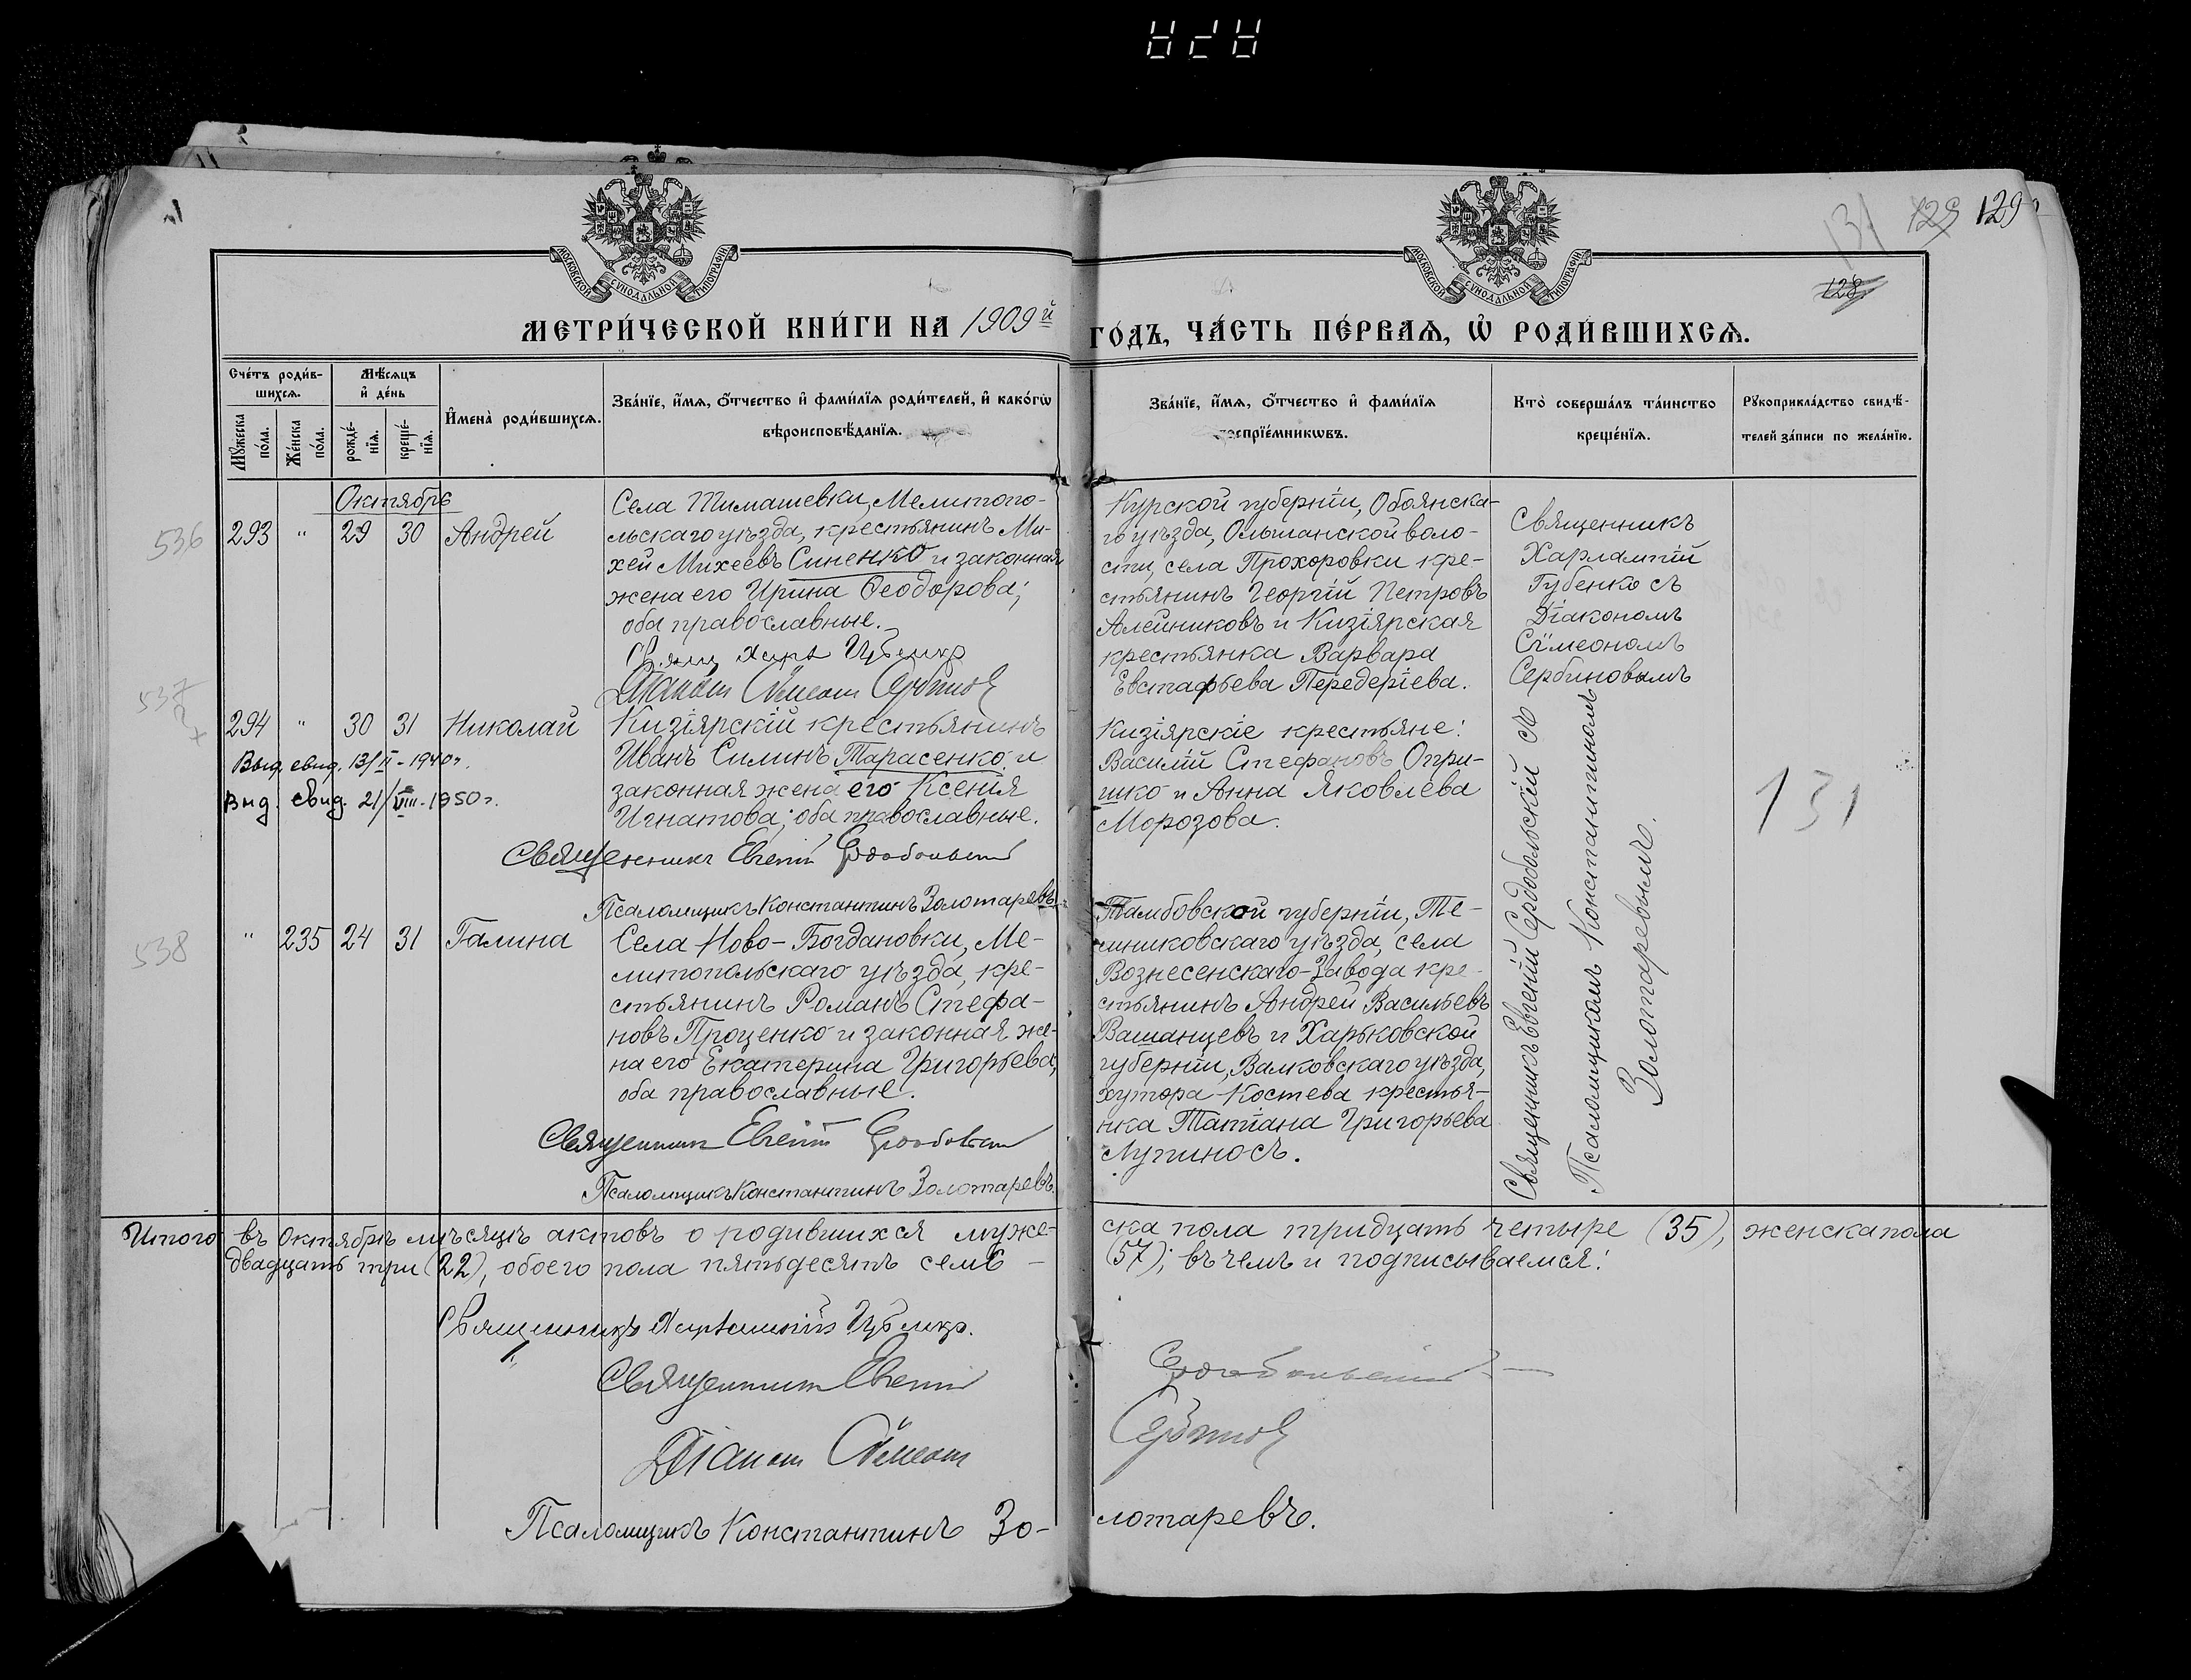 129 129
131
128
МОСКОВСКОЙ СУНОДАЛЬНОЙ ТИПОГРАФІИ
МОСКОВСКОЙ СУНОДАЛЬНОЙ ТИПОГРАФІИ
МЕТРИ́ЧЕСКОЙ КНИ́ГИ НА 1909й ГО́ДЪ, ЧА́СТЬ ПЕ́РВАѦ, Ѡ҆ РОДИ́ВШИХСѦ.
Сче́тъ роди́в-
шихсѧ.
Мꙋ́жеска по́ла.
Же́нска по́ла.
Мѣ́сѧцъ
и҆ де́нь
рожде́-
нїѧ.
креще́-
нїѧ.
И҆мена̀ роди́вшихсѧ.
Зва́нїе, и҆́мѧ, ѻ҆́тчество и҆ фами́лїѧ роди́телей, и҆ како́гѡ
вѣроисповѣ́данїѧ.
Зва́нїе, и҆́мѧ, ѻ҆́тчество и҆ фами́лїѧ
воспрїе́мникѡвъ.
Кто̀ соверша́лъ та́инство
креще́нїѧ.
Рꙋкоприкла́дство свидѣ́-
телей за́писи по жела́нїю.
Октябрь
536 293 " 29 30 Андрей
Села Тимашевки, Мелитопо-
льскаго уѣзда, крестьянинъ Ми-
хей Михеевъ Синенко и законная
жена его Ирина Ѳеодорова;
оба православные.
Свящ. Харл. Губенко
Діаконъ Сѵмеонъ Сербиновъ
Курской губерніи, Обоянска-
го уѣзда, Ольшанской воло-
сти, села Прохоровки кре-
стьянинъ Георгій Петровъ
Алейниковъ и Кизіярская
крестьянка Варвара
Евстафьева Передеріева.
Священникъ
Харлампій
Губенко съ
Діакономъ
Сѵмеономъ
Сербиновымъ
537 294 " 30 31 Николай
Выд. свид. 13/II-1940г.
Выд. свид. 21/VIII-1950г.
Кизіярскій крестьянинъ
Иванъ Силинъ Тарасенко и
законная жена его Ксенія
Игнатова; оба православные.
Священникъ Евгеній Сердобольскій
Псаломщикъ Константинъ Золотаревъ.
Кизіярскіе крестьяне:
Василій Стефановъ Опри-
шко и Анна Яковлева
Морозова.
Священникъ Евгеній Сердобольскій съ
Псаломщикомъ Константиномъ
Золотаревымъ.
131
538 " 235 24 31 Галина
Села Ново-Богдановки, Ме-
литопольскаго уѣзда, кре-
стьянинъ Романъ Стефа-
новъ Проценко и законная же-
на его Екатерина Григорьева,
оба православные.
Священникъ Евгеній Сердобольскій
Псаломщикъ Константинъ Золотаревъ.
Тамбовской губерніи, Те-
мниковскаго уѣзда, села
Вознесенскаго-Завода кре-
стьянинъ Андрей Васильевъ
Вашанцевъ и Харьковской
губерніи, Валковскаго уѣзда,
хутора Костева крестья-
нка Татіана Григорьева
Лупиносъ.
Итого въ Октябрѣ мѣсяцѣ актовъ о родившихся муже-ска пола тридцать четыре (35), женска пола
двадцать три (22), обоего пола пятьдесятъ семь - (57); въ чемъ и подписываемся:
Священникъ Харлампій Губенко.
Священникъ Евгеній Сердобольскій
Діаконъ Сѵмеонъ Сербиновъ
Псаломщикъ Константинъ Зо-лотаревъ.